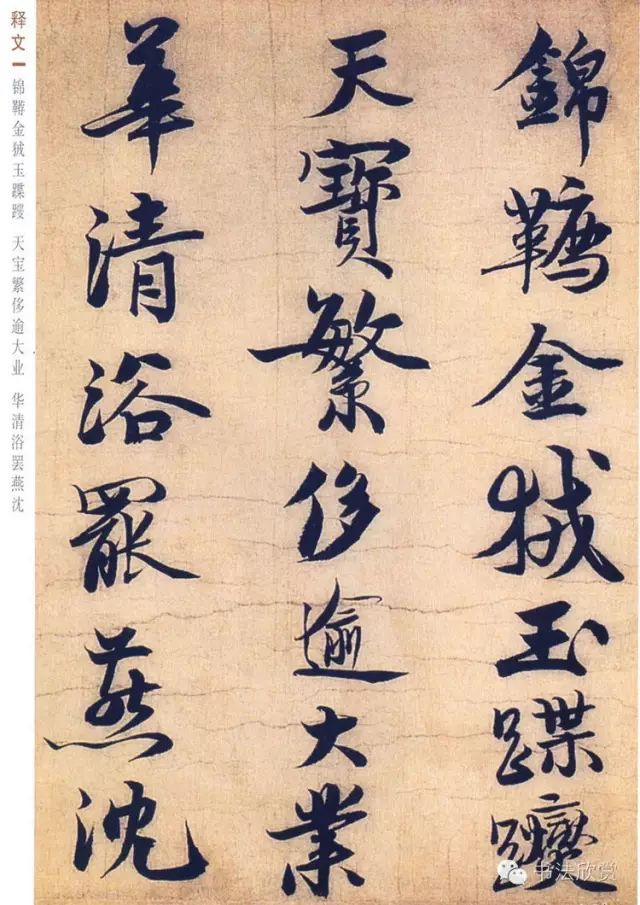 錦韉金狨玉蹀躞
天寶繁侈逾大業
華清浴罷燕沈
释文
锦鞯金狨玉蹀躞 天宝繁侈逾大业 华清浴罢燕沈
书法欣赏